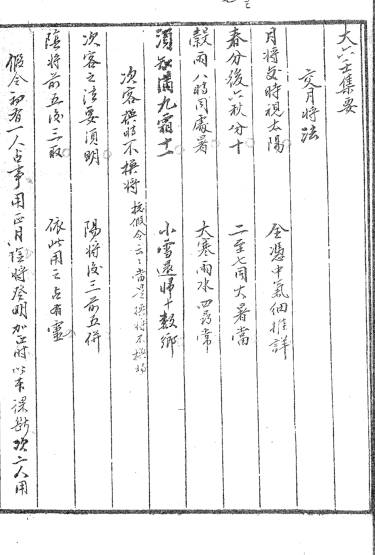 大六壬集要
交月将法
月將交時視太陽 全憑中氣細推詳
春分後六秋分十 二至七同大暑當
穀雨八時同處暑 大寒雨水四尋常
須知滿九霜十一 小雪還歸十數鄉
次客換時不換將
次客之法要須明 陽將後三前五併
陰將前五後三取 依此用之占有靈
假令初有一人占事用正月陰將登明加正時以下課斷次二人用